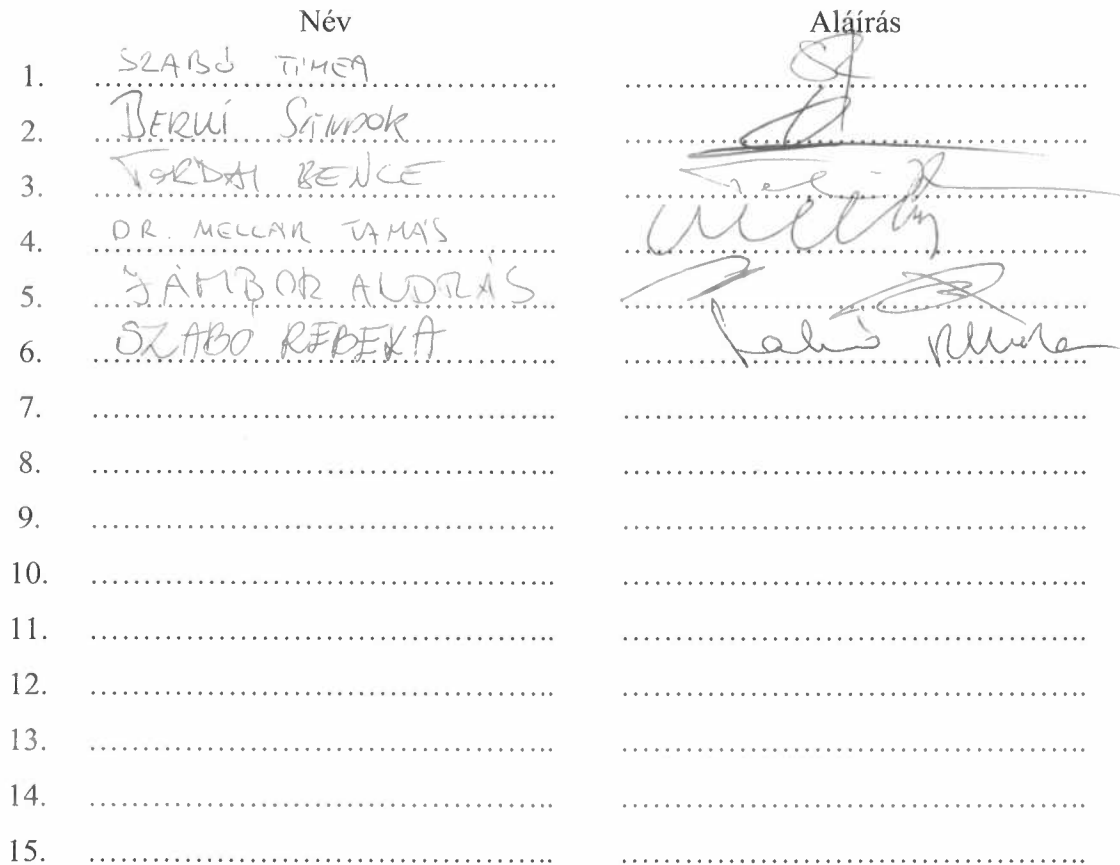 Név Aláírás
1. SZABÓ TIMEA
2. BERKI SÁNDOR
3. TORDAI BENCE
4. DR. MELLÁR TAMÁS
5. JÁMBOR ANDRÁS
6. SZABÓ REBEKA
7.
8.
9.
10.
11.
12.
13.
14.
15.